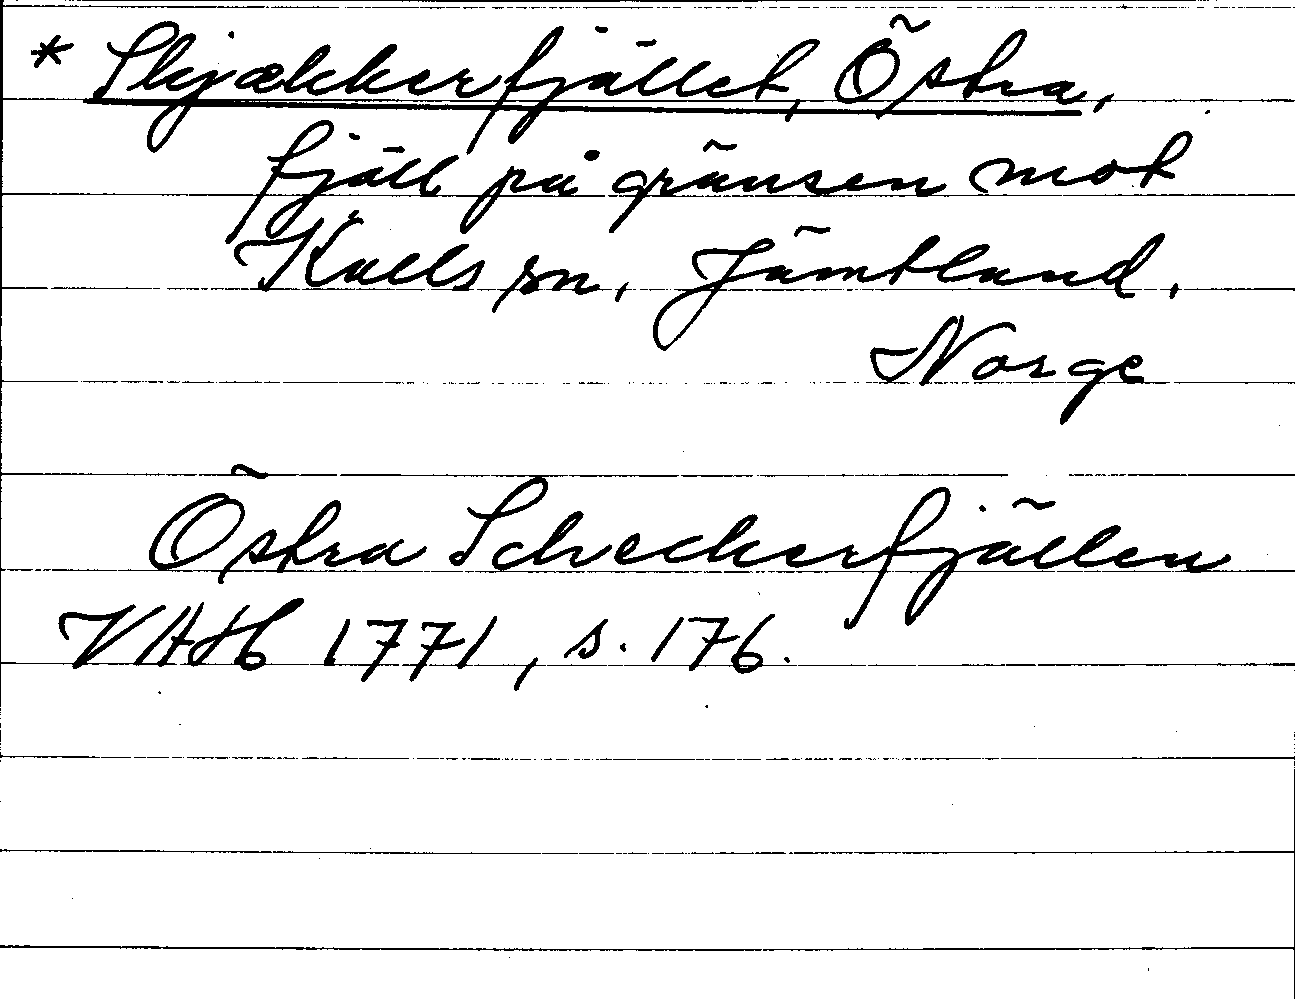 * Skjækkerfjället, Östra,
fjäll på gränsen mot
Kalls sn, Jämtland,
Norge
Östra Scheckerfjällen
VAH 1771, s. 176.